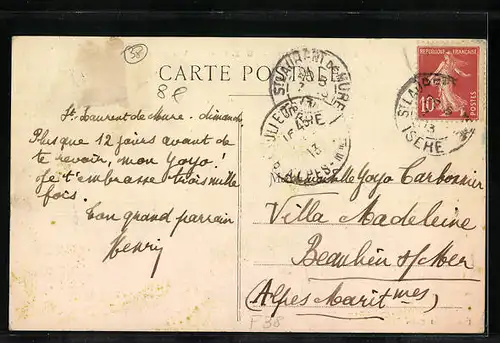 38
CARTE POSTALE
8f
REPUBLIQUE FRANÇAISE
10
POSTES
ST LAURENT DE MURE
ISERE
13
St Laurent de Mure - dimanche
Plus que 12 jours avant de
te revoir, mon Yoyo!
Je t'embrasse trois mille
fois.
Ton grand parrain
Henri
Mademoiselle Yoyo Carbonnier
Villa Madeleine
Beaulieu s/ Mer
(Alpes Maritmes)
F 38